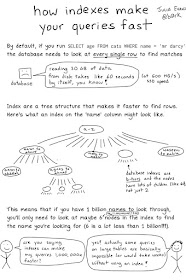 how indexes make
your queries fast
Julia Evans
@b0rk
By default, if you run SELECT age FROM cats WHERE name = 'mr darcy'
the database needs to look at every single row to find matches
database
reading 30 GB of data
from disk takes like 60 seconds
by itself, you know!
(at 500 MB/s
SSD speed)
Indexes are a tree structure that makes it faster to find rows.
Here's what an index on the 'name' column might look like.
database indexes are
b-trees and the nodes
have lots of children
This means that if you have 1 billion names to look through,
you'll only need to look at maybe nodes in the index to find
the name you're looking for (6 is a lot less than 1 billion!!!).
are you saying
indexes can make
my queries 1,000,000x
faster?
yes! actually some queries
on large tables are basically
impossible (or would take weeks)
without using an index!